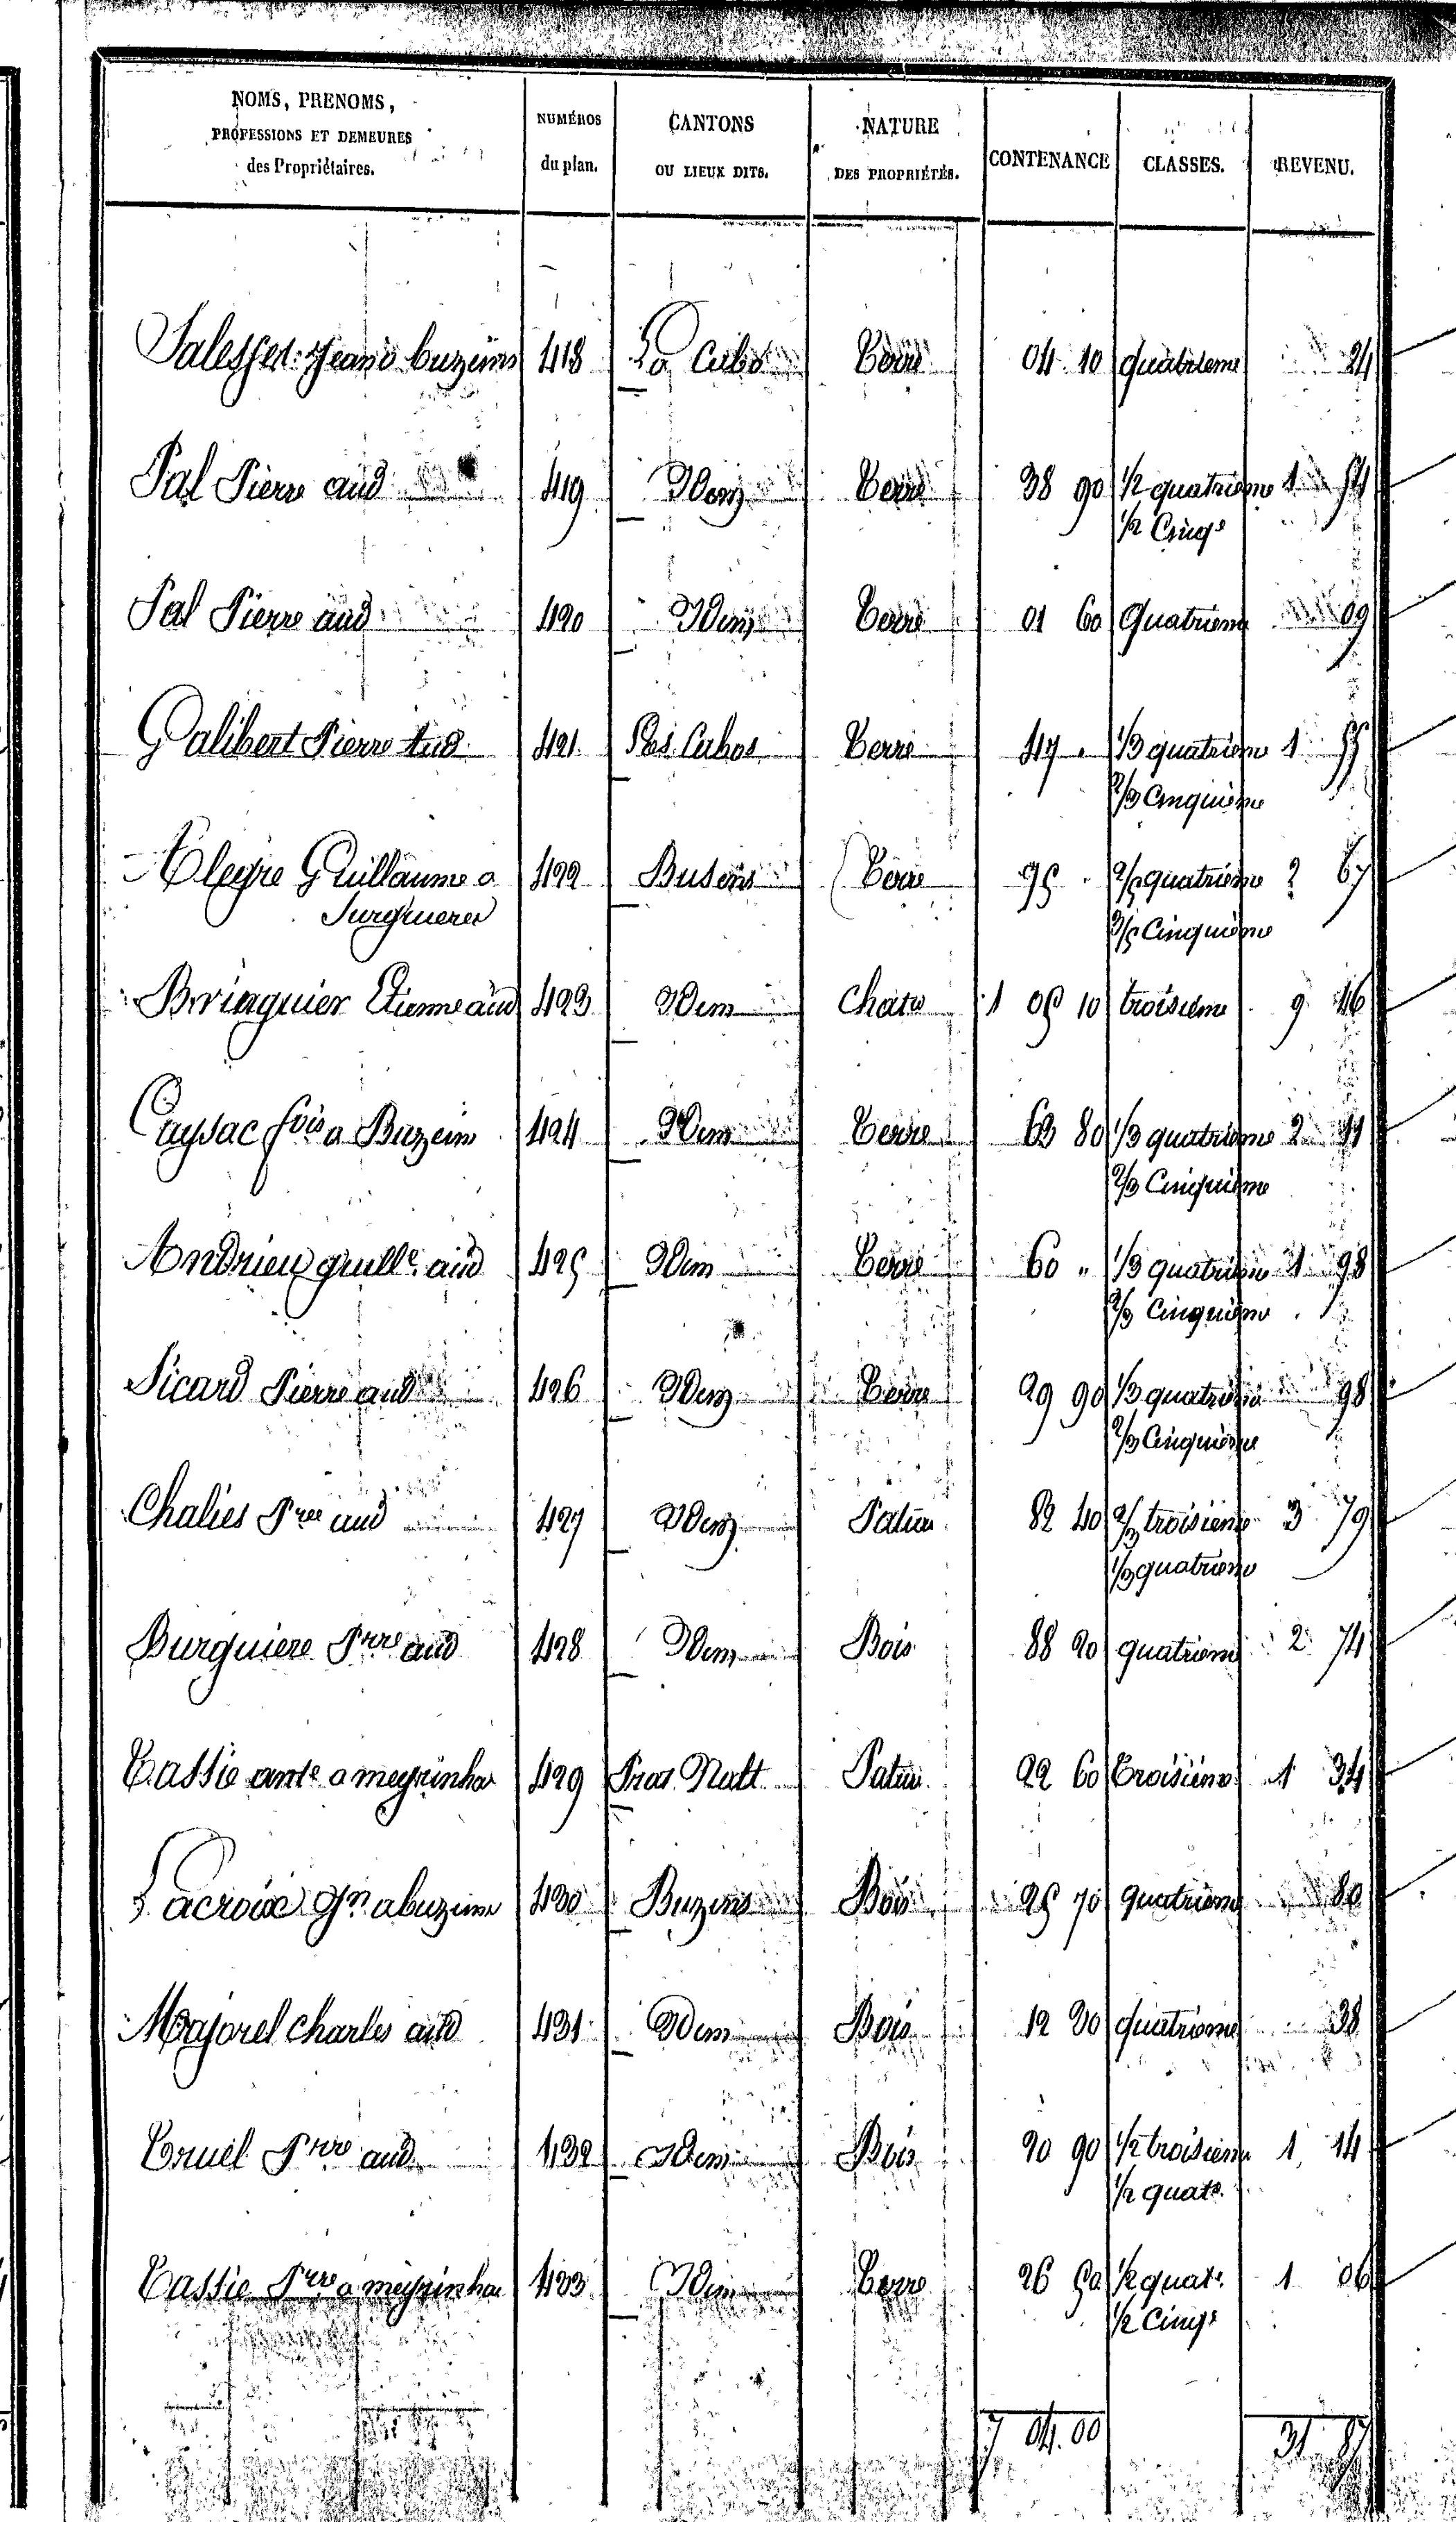 NOMS, PRENOMS,
PROFESSIONS ET DEMEURES
des Propriétaires.
NUMÉROS
du plan.
CANTONS
OU LIEUX DITS.
NATURE
DES PROPRIÉTÉS.
CONTENANCE
CLASSES.
REVENU.
Salesses Jean a buzeins 418 La Cabo Terre 04 10 quatrieme 24
Pal Pierre aud 419 Idem Terre 38 90 1/2 quatrieme 1 54
1/2 Cinqe
Pal Pierre aud 420 Idem Terre 01 60 Quatrieme 09
Galibert Pierre aud 421 Las Cabos Terre 47 " 1/3 quatrieme 1 55
2/3 Cinquième
Aleyre Guillaume a 422 Buseins Terre 75 " 2/5 quatrième 2 67
3/5 Cinquième
Bringuier Etienne aud 423 Idem Chata 1 05 10 troisieme 9 46
Caysac fois a Buzeins 424 Idem Terre 63 80 1/3 quatrieme 2 11
2/3 Cinquième
Andrieu guille aud 425 Idem Terre 60 " 1/3 quatrieme 1 98
2/3 Cinquième
Sicard Pierre aud 426 Idem Terre 29 90 1/3 quatrieme 98
2/3 Cinquième
Chaliès Prre aud 427 Idem Pature 82 40 2/3 troisieme 3 79
1/3 quatrieme
Burguiere Prre aud 428 Idem Bois 88 20 quatrieme 2 74
Tassie ante a meyrinhac 429 Pature 22 60 Troisième 1 34
Lacroix Jn a buzeins 430 Buzeins Bois 25 70 quatrieme 80
Majorel Charles aud 431 Idem Bois 12 20 quatrieme 38
Truel Prre aud 432 Idem Bois 20 90 1/2 troisieme 1 14
1/2 quate
Tassie Prre a meyrinhac 433 Idem Terre 26 50 1/2 quate 1 06
1/2 Cinqe
7 04 00 31 87